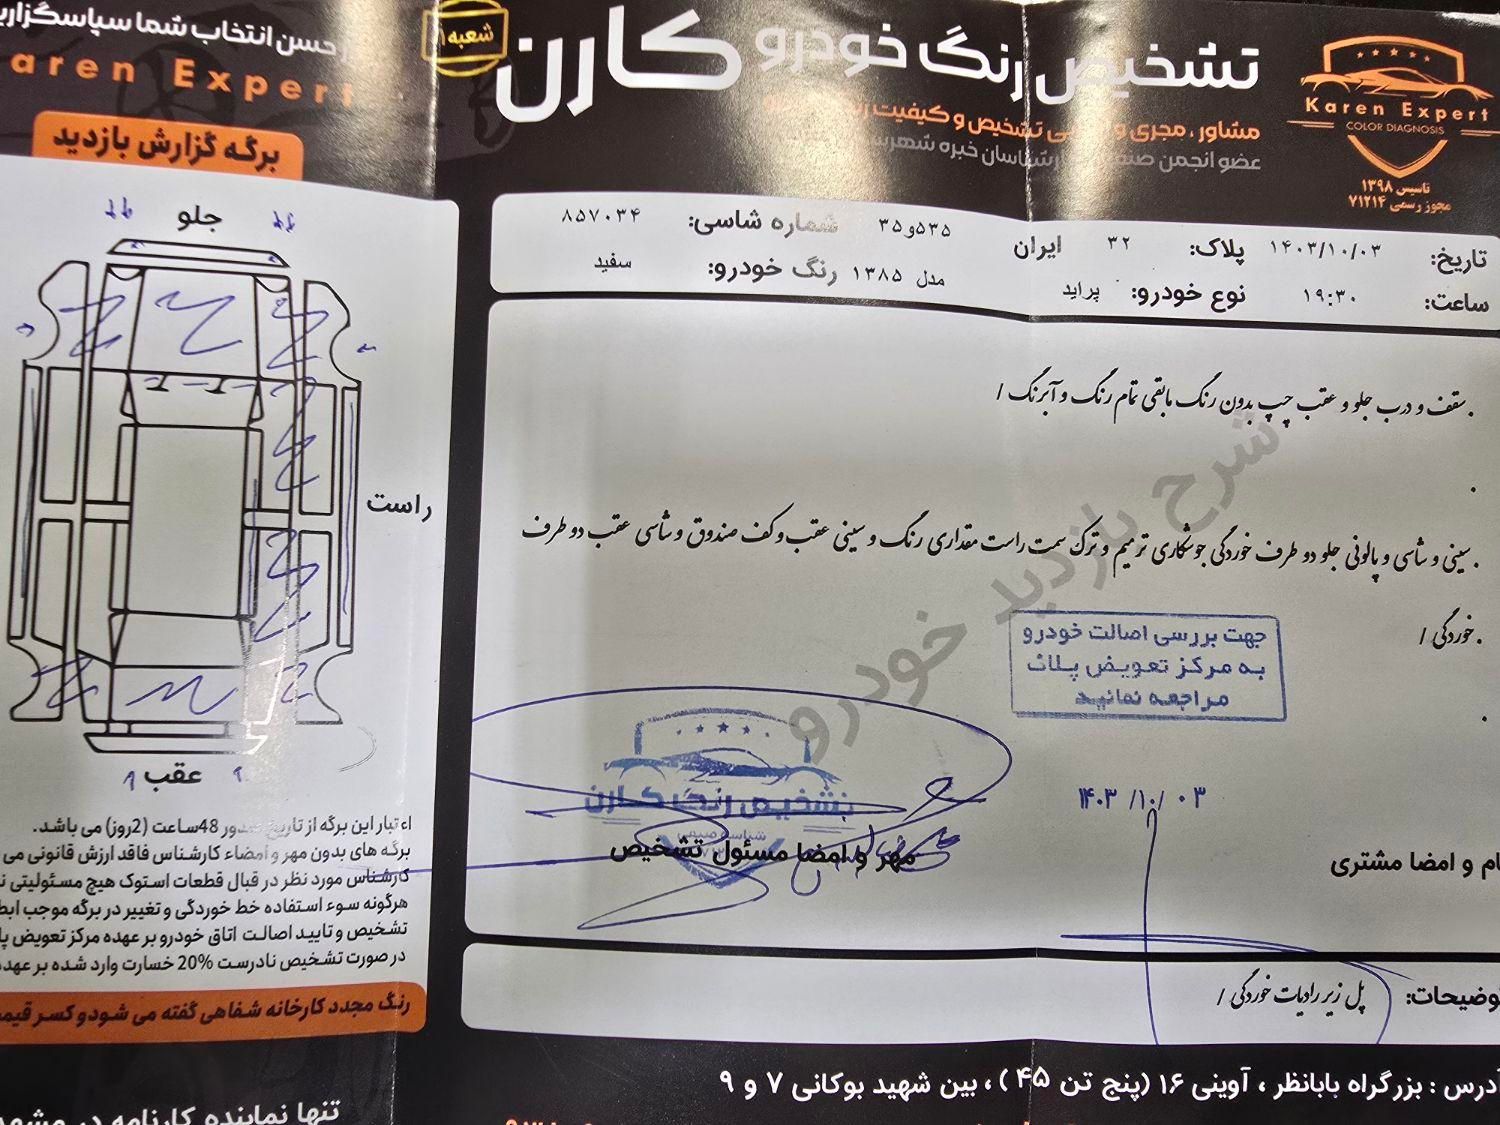 تشخیص رنگ خودرو کارن
شعبه ۱
مشاور ، مجری و تشخیص و کیفیت
عضو انجمن کارشناسان خبره
Karen Expert
COLOR DIAGNOSIS
تاسیس ۱۳۹۸
مجوز رسمی ۷۱۲۱۴
حسن انتخاب شما سپاسگزاری
aren Expert
برگه گزارش بازدید
تاریخ: ۱۴۰۳/۱۰/۰۳ پلاک: ۳۲ ایران ۵۳۵و۳۵ شماره شاسی: ۸۵۷۰۳۴
ساعت: ۱۹:۳۰ نوع خودرو: پراید مدل ۱۳۸۵ رنگ خودرو: سفید
جلو
راست
عقب
. سقف و درب جلو و عقب چپ بدون رنگ مابقی تمام رنگ و آبرنگ /
.
. سینی و شاسی و پالونی جلو دو طرف خوردگی جوشکاری ترمیم و ترک سمت راست مقداری رنگ و سینی عقب وکف صندوق و شاسی عقب دو طرف
. خوردگی /
.
شرح بازدید خودرو
جهت بررسی اصالت خودرو
به مرکز تعویض پلاک
مراجعه نمائید
تشخیص رنگ کارن
۱۴۰۳/۱۰/۰۳
مهر و امضا مسئول تشخیص
ام و امضا مشتری
اعتبار این برگه از تاریخ صدور 48ساعت (2روز) می باشد.
برگه های بدون مهر و امضاء کارشناس فاقد ارزش قانونی می
کارشناس مورد نظر در قبال قطعات استوک هیچ مسئولیتی
هرگونه سوء استفاده خط خوردگی و تغییر در برگه موجب
تشخیص و تایید اصالت اتاق خودرو بر عهده مرکز تعویض
در صورت تشخیص نادرست 20% خسارت وارد شده بر عهد
رنگ مجدد کارخانه شفاهی گفته می شود و کسر
وضیحات: پل زیر رادیات خوردگی /
درس : بزرگراه بابانظر ، آوینی ۱۶ (پنج تن ۴۵ ) ، بین شهید بوکانی ۷ و ۹
تنها نماینده کارنامه در